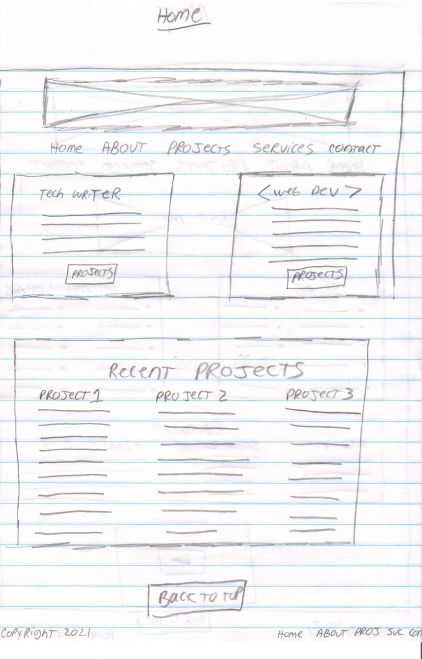 Home
Home ABOUT PROJECTS SERVICES contact
Tech WRITER
<WEB DEV>
PROJECTS
PROJECTS
Recent PROJECTS
PROJECT 1 PROJECT 2 PROJECT 3
BACK TO TOP
COPYRIGHT 2021
Home ABOUT PROJ SVC con